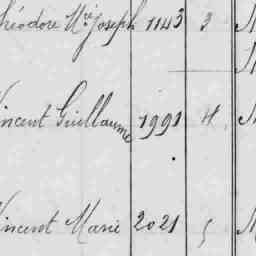 héodore Mie Joseph 1143 3
incent Guillaume 1991 4
incent Marie 2021 5